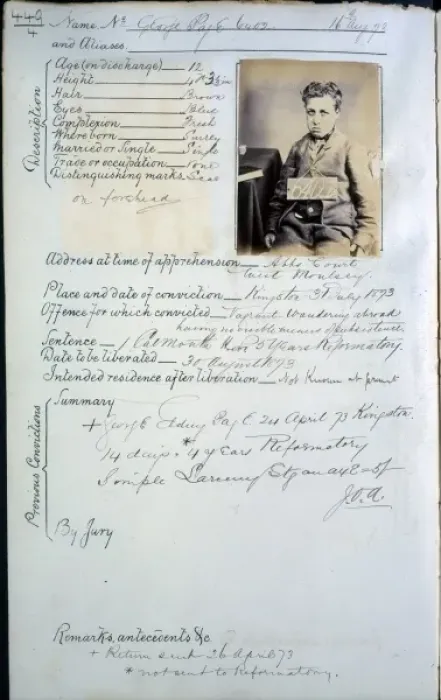 449
4
Name No. George Page 6462 16 Aug 73
and Aliases.
Description
Age (on discharge) 12
Height 4 ft 3½ in
Hair Brown
Eyes Blue
Complexion Fresh
Where born Surrey
Married or Single Single
Trade or occupation None
Distinguishing marks Scar
on forehead
Address at time of apprehension Abbs Court
East Moulsey.
Place and date of conviction Kingston 31 July 1873
Offence for which convicted Vagrant Wandering abroad
having no visible means of subsistence
Sentence 1 Cal Month & 5 Years Reformatory.
Date to be liberated 30 August 1873
Intended residence after liberation Not Known at present
Previous Convictions
Summary
+ George Page 24 April 73 Kingston
14 days & * 4 years Reformatory
Simple Larceny
By Jury
Remarks, antecedents &c.
+ Return sent 26 April 73
* not sent to Reformatory.